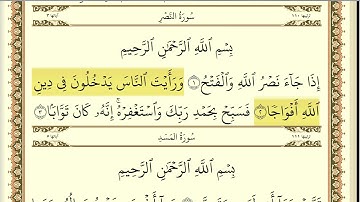 سُورَةُ النَّصْرِ
بِسْمِ ٱللَّهِ ٱلرَّحْمَٰنِ ٱلرَّحِيمِ
إِذَا جَآءَ نَصْرُ ٱللَّهِ وَٱلْفَتْحُ ١ وَرَأَيْتَ ٱلنَّاسَ يَدْخُلُونَ فِى دِينِ
ٱللَّهِ أَفْوَاجًا ٢ فَسَبِّحْ بِحَمْدِ رَبِّكَ وَٱسْتَغْفِرْهُ ۚ إِنَّهُۥ كَانَ تَوَّابًۢا ٣
سُورَةُ المَسَدِ
بِسْمِ ٱللَّهِ ٱلرَّحْمَٰنِ ٱلرَّحِيمِ